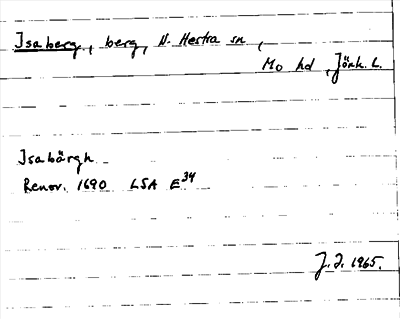 Isaberg, berg, N. Hestra sn,
Mo hd, Jönk. L.
Isabärgh
Renov. 1690 LSA E34
J.I. 1965.